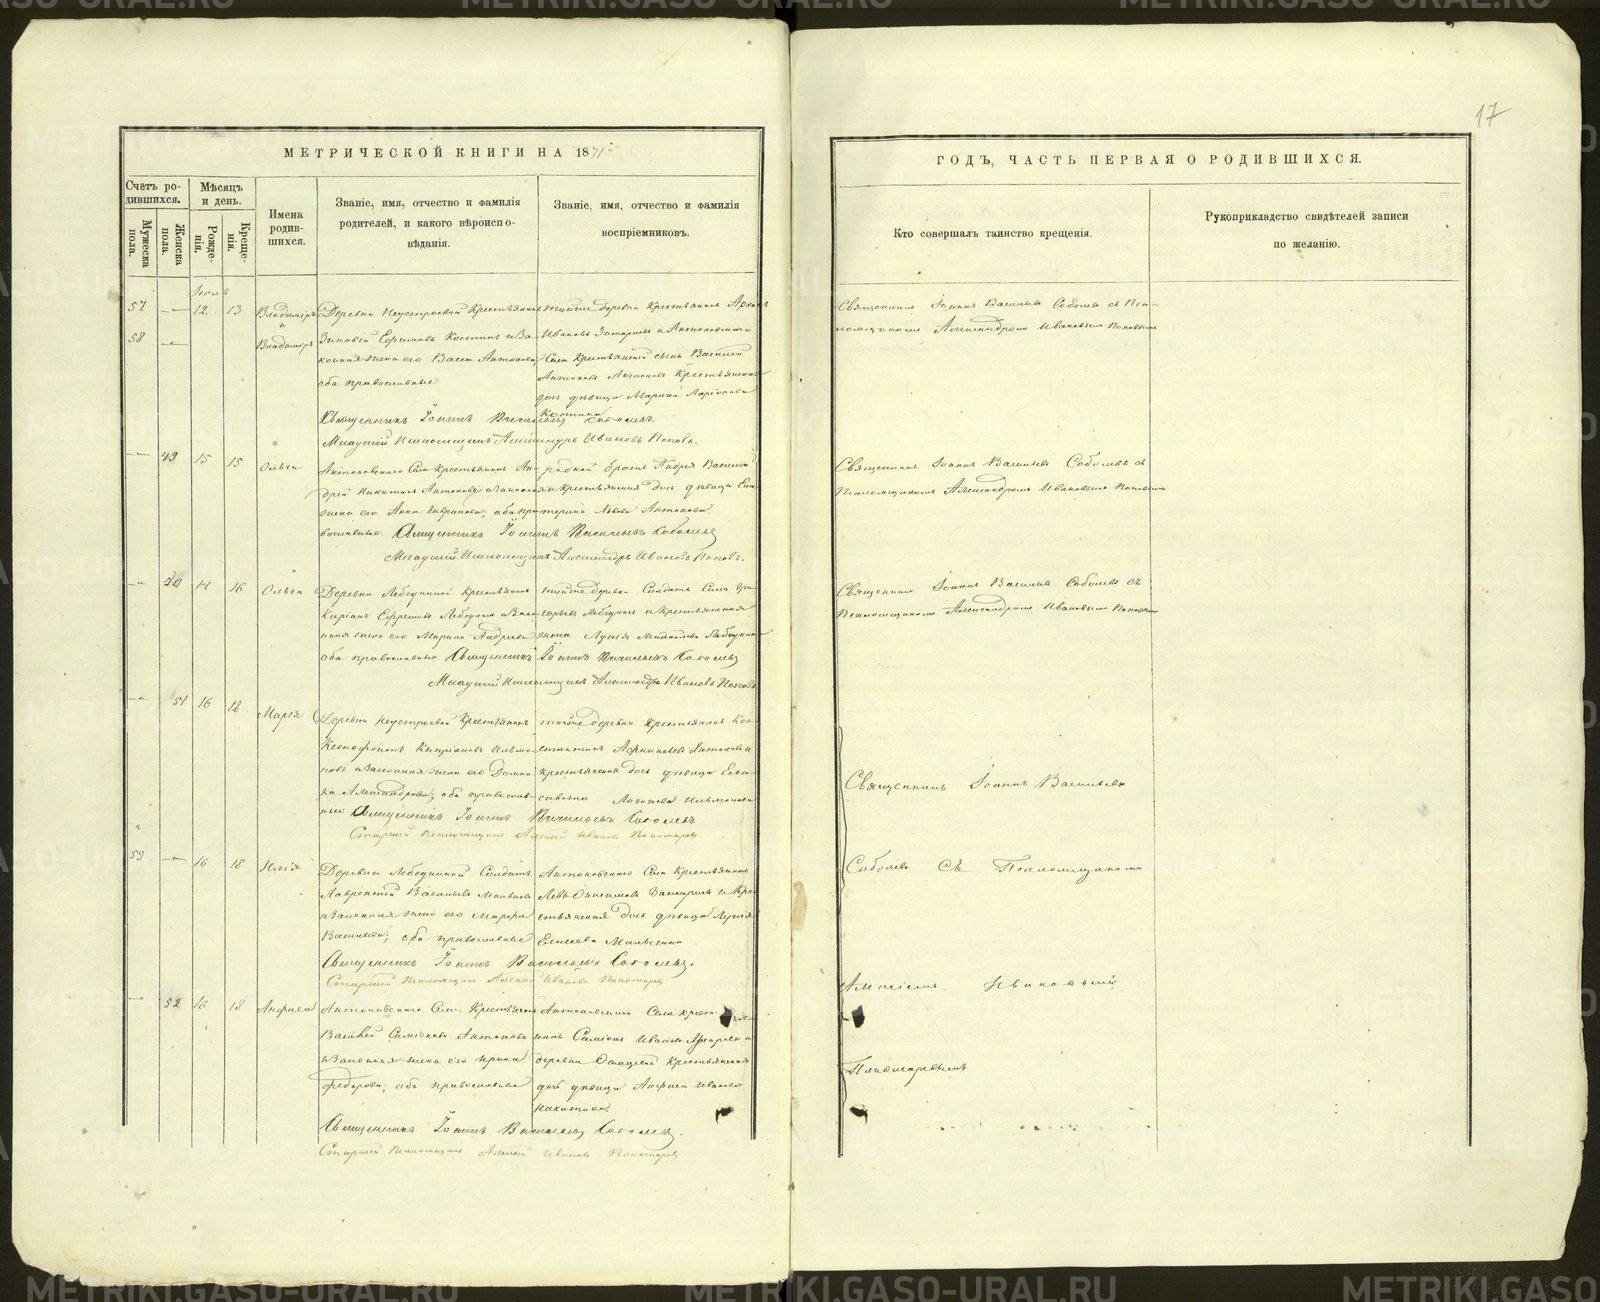 17
МЕТРИЧЕСКОЙ КНИГИ НА 1871
Счетъ родившихся.
Мужеска пола.
Женска пола.
Мѣсяцъ и день.
Рожденія.
Крещенія.
Имена родившихся.
Званіе, имя, отчество и фамилія
родителей, и какого вѣроиспо-
вѣданія.
Званіе, имя, отчество и фамилія
воспріемниковъ.
Іюль
57 — 12 13 Владиміръ Деревни Неустроевой Крестьянинъ тойже деревни крестьянинъ
и
58 — Владиміръ Зиновій Ефимовъ Костинъ и За- Ивановъ и Антоновскаго
конная жена его Васса Антонова, Села Крестьянскій сынъ Василій
оба православные Антоновъ Антоновъ Крестьянская
дочь дѣвица Марія Ларіонова
Костина
Священникъ Іоаннъ Васильевъ Соболевъ.
Младшій Псаломщикъ Александръ Ивановъ Поповъ.
— 49 15 15 Ольга Антоновскаго Села крестьянинъ Ан- родной братъ Андрея Василій
дрей Никитинъ Антоновъ и законная и Крестьянская дочь дѣвица Ека-
жена его Анна Гаврилова; оба пра- терина Львова Антонова
вославные Священникъ Іоаннъ Васильевъ Соболевъ
Младшій Псаломщикъ Александръ Ивановъ Поповъ.
— 50 14 16 Ольга Деревни Лебедкиной Крестьянинъ тойже деревни Солдатъ
Киріакъ Ефремовъ Лебедкинъ и Зако- Лебедкинъ и крестьянская
нная жена его Марина Андреева жена Михайлова Лебедкина
оба православные Священникъ Іоаннъ Васильевъ Соболевъ
Младшій Псаломщикъ Александръ Ивановъ Поповъ
— 51 16 18 Марія Деревни Неустроевой Крестьянинъ тойже деревни крестьянинъ Кон-
Ксенофонтъ Кипріановъ стантинъ Антоновъ и
и Законная жена его Домни- крестьянская дочь дѣвица Ели-
ка Александрова; оба православ- савета
ные Священникъ Іоаннъ Васильевъ Соболевъ
Старшій Псаломщикъ Алексій Ивановъ Пономаревъ
59 — 16 18 Илія Деревни Лебедкиной Солдатъ Антоновскаго Села Крестьянинъ
Лаврентій Васильевъ и Кре-
и Законная жена его Марѳа стьянская дочь дѣвица
Васильева; оба православные Елисеева
Священникъ Іоаннъ Васильевъ Соболевъ.
Старшій Псаломщикъ Алексій Ивановъ Пономаревъ
— 52 16 18 Анфиса Антоновскаго Села Крестьянинъ Антоновскаго Села кресть-
Василій Антоновъ нинъ Симеонъ Ивановъ и
и Законная жена его деревни Крестьянская
Федорова; оба православные дочь дѣвица Анфиса Иванова
Никитина
Священникъ Іоаннъ Васильевъ Соболевъ.
Старшій Псаломщикъ Алексій Ивановъ Пономаревъ
ГОДЪ, ЧАСТЬ ПЕРВАЯ О РОДИВШИХСЯ.
Кто совершалъ таинство крещенія.
Рукоприкладство свидѣтелей записи
по желанію.
Священникъ Іоаннъ Васильевъ Соболевъ съ Пса-
ломщикомъ Александромъ Ивановымъ Поповымъ
Священникъ Іоаннъ Васильевъ Соболевъ съ
Псаломщикомъ Александромъ Ивановымъ Поповымъ
Священникъ Іоаннъ Васильевъ Соболевъ съ
Псаломщикомъ Александромъ Ивановымъ Поповымъ
Священникъ Іоаннъ Васильевъ
Соболевъ съ Псаломщикомъ
Алексіемъ Ивановымъ
Пономаревымъ
METRIKI.GASO-URAL.RU